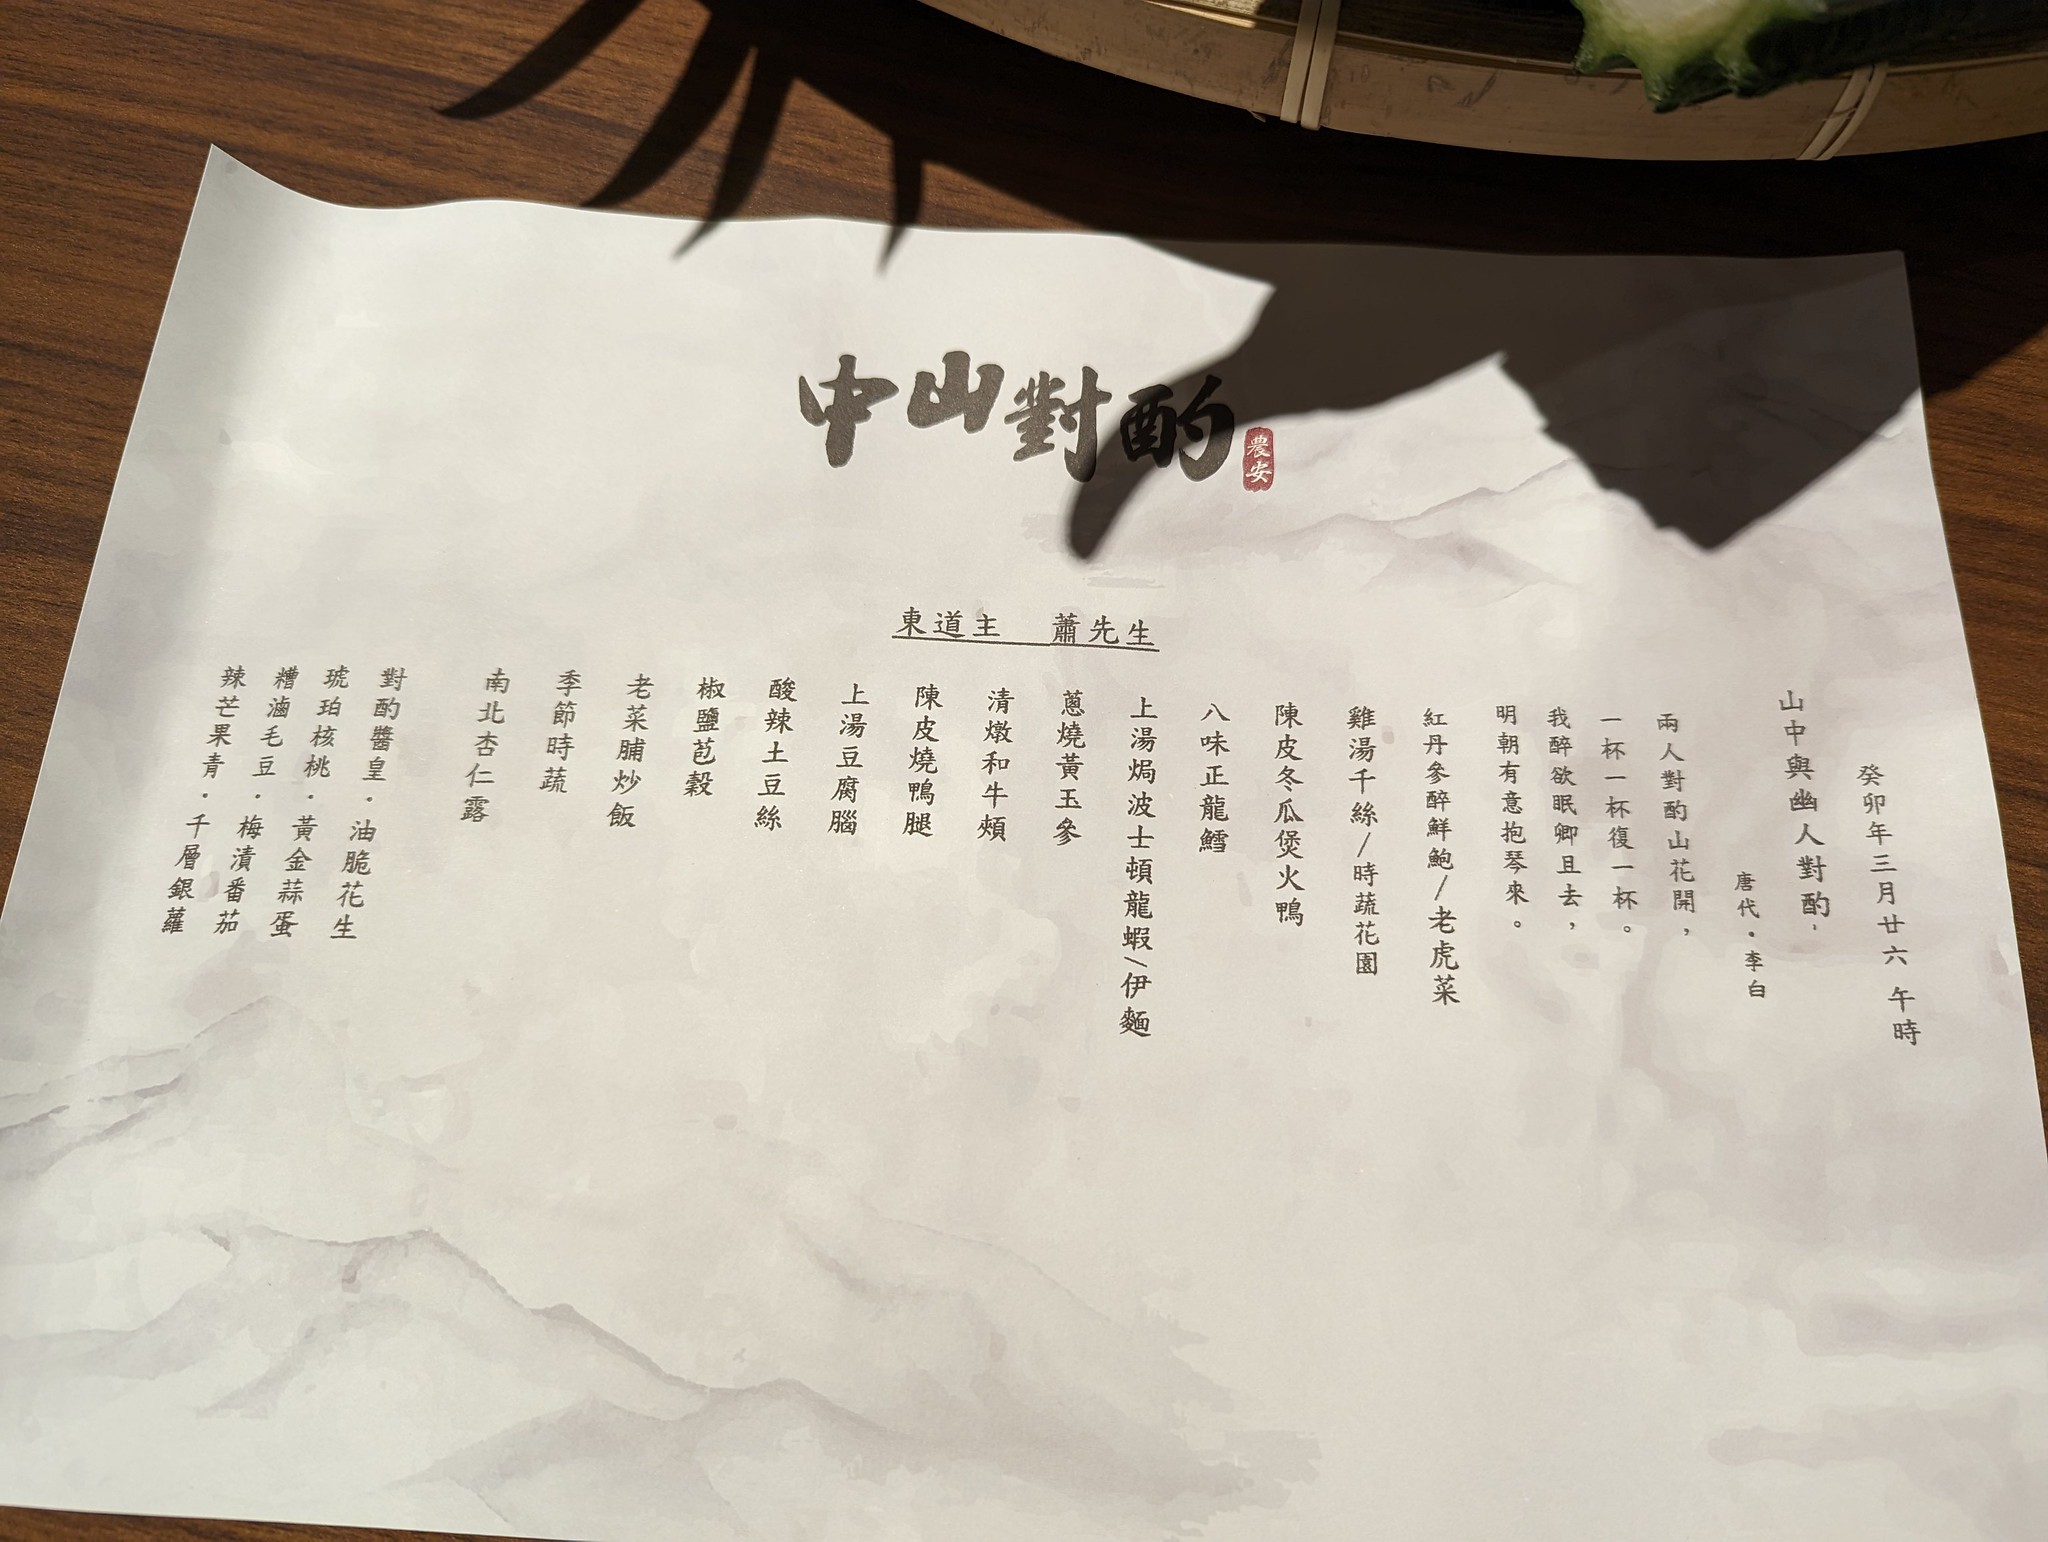 中山對酌
農安
東道主 蕭先生
癸卯年三月廿六 午時
山中與幽人對酌，
唐代・李白
兩人對酌山花開，
一杯一杯復一杯。
我醉欲眠卿且去，
明朝有意抱琴來。
紅丹參醉鮮鮑/老虎菜
雞湯千絲/時蔬花園
陳皮冬瓜煲火鴨
八味正龍鱈
上湯焗波士頓龍蝦/伊麵
蔥燒黃玉參
清燉和牛頰
陳皮燒鴨腿
上湯豆腐腦
酸辣土豆絲
椒鹽苞穀
老菜脯炒飯
季節時蔬
南北杏仁露
對酌醬皇・油脆花生
琥珀核桃・黃金蒜蛋
糟滷毛豆・梅漬番茄
辣芒果青・千層銀蘿